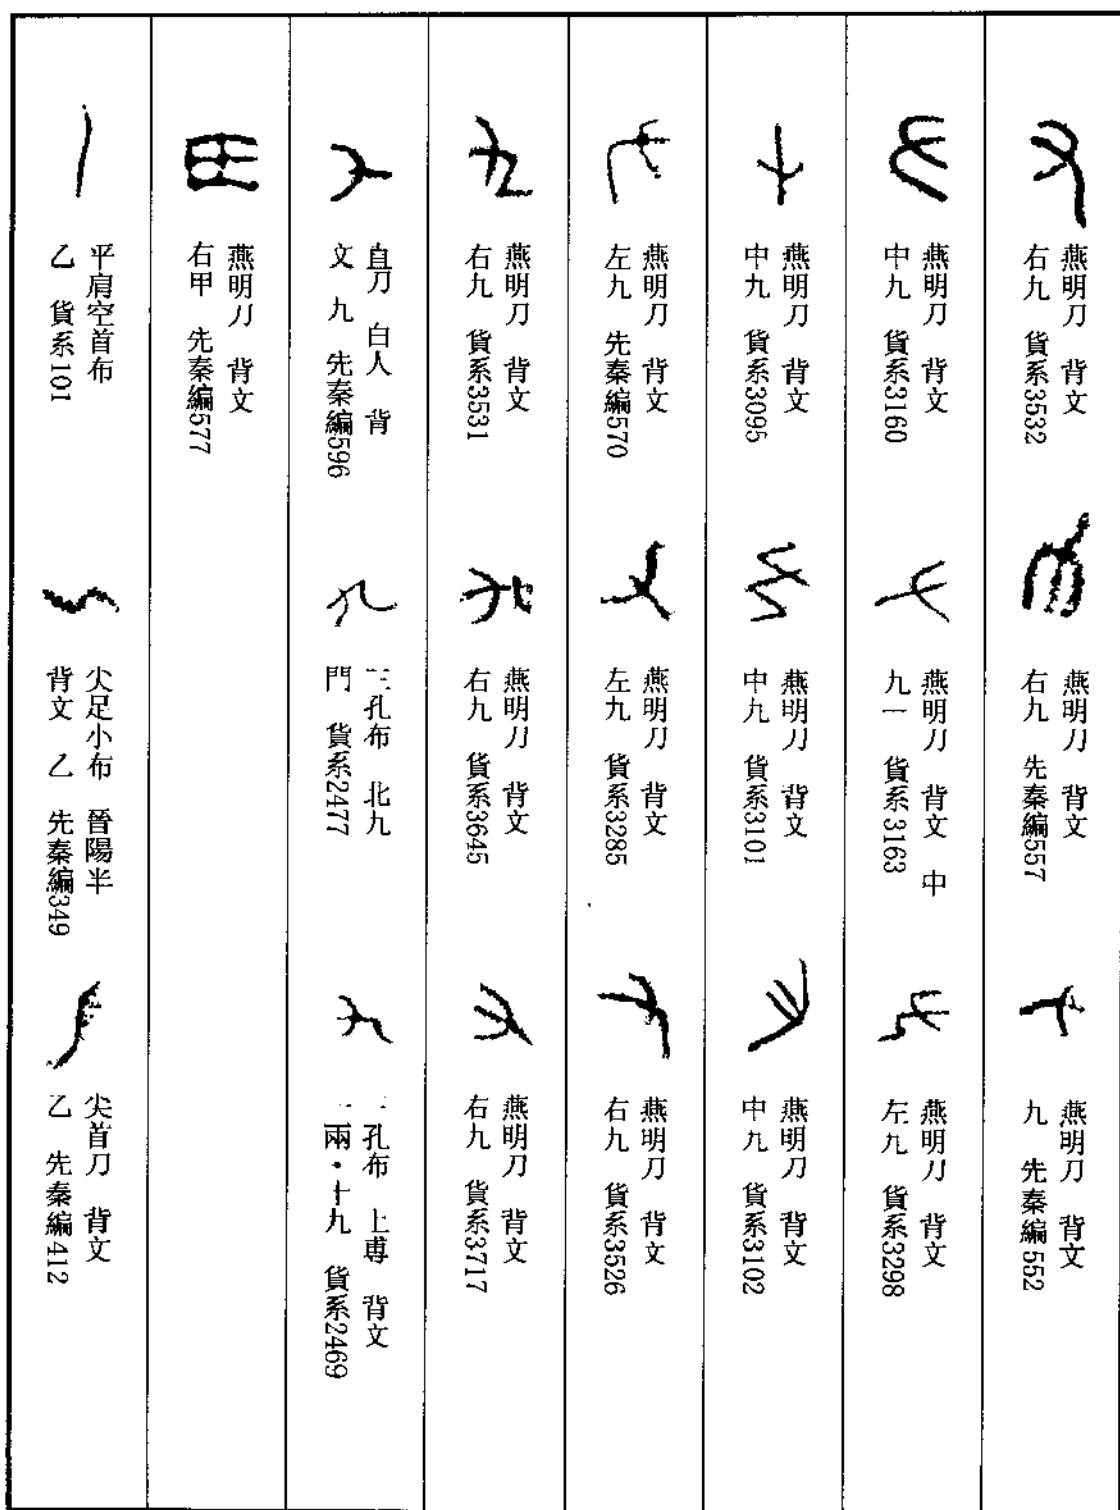 燕明刀 背文
右九 貨系3532
燕明刀 背文
右九 先秦編557
燕明刀 背文
九 先秦編552
燕明刀 背文
中九 貨系3160
燕明刀 背文 中
九一 貨系3163
燕明刀 背文
左九 貨系3298
燕明刀 背文
中九 貨系3095
燕明刀 背文
中九 貨系3101
燕明刀 背文
中九 貨系3102
燕明刀 背文
左九 先秦編570
燕明刀 背文
左九 貨系3285
燕明刀 背文
右九 貨系3526
燕明刀 背文
右九 貨系3531
燕明刀 背文
右九 貨系3645
燕明刀 背文
右九 貨系3717
直刀 白人 背
文 九 先秦編596
三孔布 北九
門 貨系2477
孔布 上專 背文
兩·十九 貨系2469
燕明刀 背文
右甲 先秦編577
平肩空首布
乙 貨系101
尖足小布 晉陽半
背文 乙 先秦編349
尖首刀 背文
乙 先秦編412